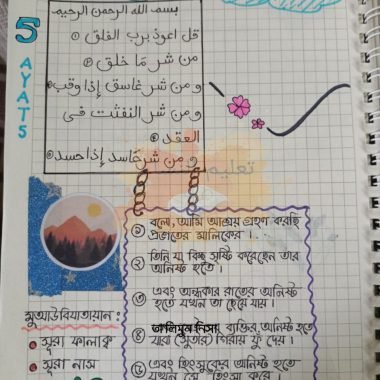 بسم الله الرحمن الرحيم
قل اعوذ برب الفلق ①
من شر مَا خلق ②
و من شر غاسق إذا وقب ③
و من شر النفثت فى
العقد ④
و من شر حاسد إذا حسد ⑤
5
AYATS
تعليم
১ বলো, আমি আশ্রয় গ্রহণ করছি
প্রভাতের মালিকের।
২ তিনি যা কিছু সৃষ্টি করেছেন তার
অনিষ্ট হতে।
৩ এবং অন্ধকার রাতের অনিষ্ট
হতে যখন তা ছেয়ে যায়।
৪ ব্যক্তির অনিষ্ট হতে
যারা (সুতার) গিরায় ফুঁ দেয়।
৫ এবং হিংসুকের অনিষ্ট হতে
যখন সে হিংসা করে
মুআউবিযাতায়ান:
সূরা ফালাক্ব
সূরা নাস